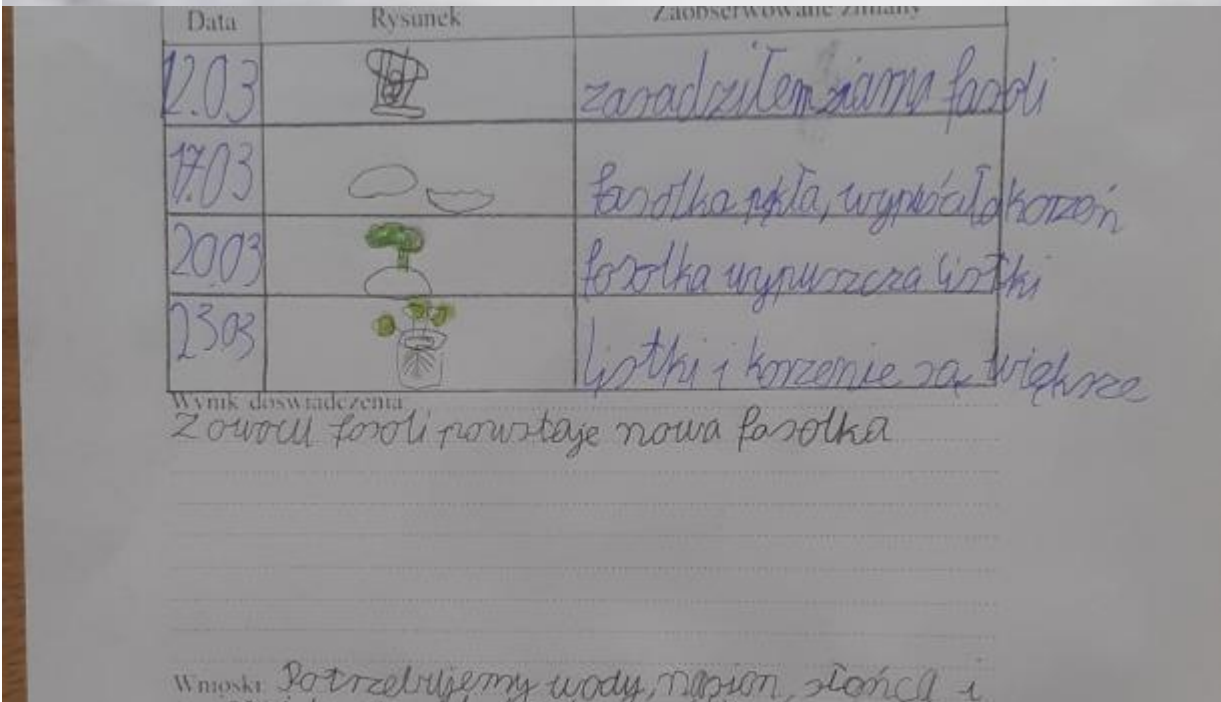 Data Rysunek Zaobserwowane zmiany
12.03 zasadziłem ziarno fasoli
17.03 fasolka pękła, wypuściła korzeń
20.03 fasolka wypuszcza listki
23.03 listki i korzenie są większe
Wynik doświadczenia
Z owocu fasoli powstaje nowa fasolka
Wnioski: Potrzebujemy wody, nasion, słońca i